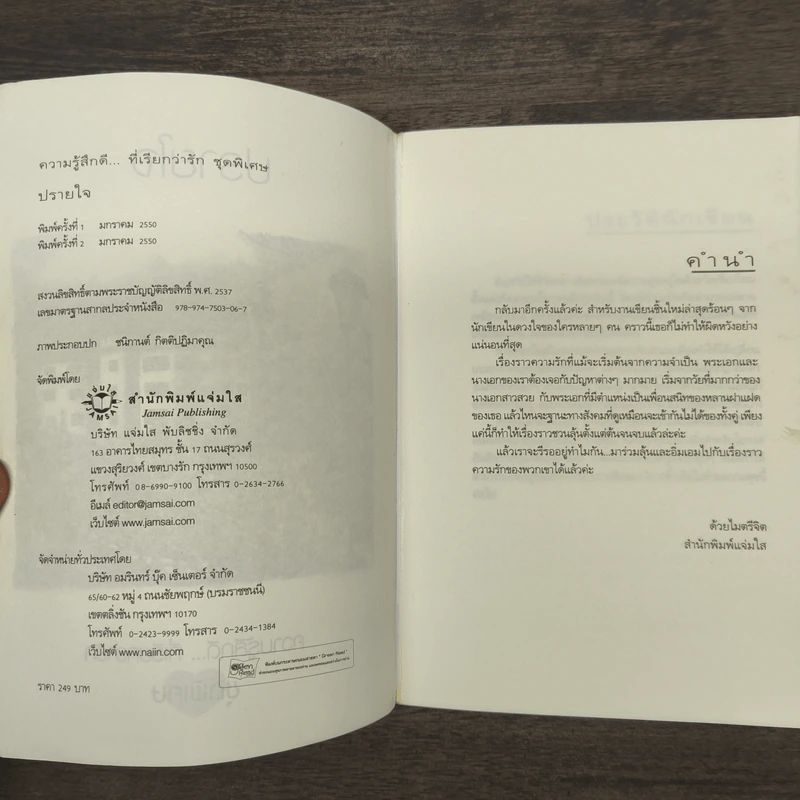 ความรู้สึกดี... ที่เรียกว่ารัก ชุดพิเศษ
ปรายใจ
พิมพ์ครั้งที่ 1 มกราคม 2550
พิมพ์ครั้งที่ 2 มกราคม 2550
สงวนลิขสิทธิ์ตามพระราชบัญญัติลิขสิทธิ์ พ.ศ. 2537
เลขมาตรฐานสากลประจำหนังสือ 978-974-7503-06-7
ภาพประกอบปก ชนิกานต์ กิตติปฏิมาคุณ
จัดพิมพ์โดย
สำนักพิมพ์แจ่มใส
Jamsai Publishing
บริษัท แจ่มใส พับลิชชิ่ง จำกัด
163 อาคารไทยสมุทร ชั้น 17 ถนนสุรวงศ์
แขวงสุริยวงศ์ เขตบางรัก กรุงเทพฯ 10500
โทรศัพท์ 08-6990-9100 โทรสาร 0-2634-2766
อีเมล์ editor@jamsai.com
เว็บไซต์ www.jamsai.com
จัดจำหน่ายทั่วประเทศโดย
บริษัท อมรินทร์ บุ๊ค เซ็นเตอร์ จำกัด
65/60-62 หมู่ 4 ถนนชัยพฤกษ์ (บรมราชชนนี)
เขตตลิ่งชัน กรุงเทพฯ 10170
โทรศัพท์ 0-2423-9999 โทรสาร 0-2434-1384
เว็บไซต์ www.naiin.com
พิมพ์บนกระดาษถนอมสายตา "Green Read"
ราคา 249 บาท
คำนำ
กลับมาอีกครั้งแล้วค่ะ สำหรับงานเขียนชิ้นใหม่ล่าสุดร้อนๆ จาก
นักเขียนในดวงใจของใครหลายๆ คน คราวนี้เธอก็ไม่ทำให้ผิดหวังอย่าง
แน่นอนที่สุด
เรื่องราวความรักที่แม้จะเริ่มต้นจากความจำเป็น พระเอกและ
นางเอกของเราต้องเจอกับปัญหาต่างๆ มากมาย เริ่มจากวัยที่มากกว่าของ
นางเอกสาวสวย กับพระเอกที่มีตำแหน่งเป็นเพื่อนสนิทของหลานฝาแฝด
ของเธอ แล้วไหนจะฐานะทางสังคมที่ดูเหมือนจะเข้ากันไม่ได้ของทั้งคู่ เพียง
แค่นี้ก็ทำให้เรื่องราวชวนลุ้นตั้งแต่ต้นจนจบแล้วล่ะค่ะ
แล้วเราจะรีรออยู่ทำไมกัน...มาร่วมลุ้นและอิ่มเอมไปกับเรื่องราว
ความรักของพวกเขาได้แล้วค่ะ
ด้วยไมตรีจิต
สำนักพิมพ์แจ่มใส